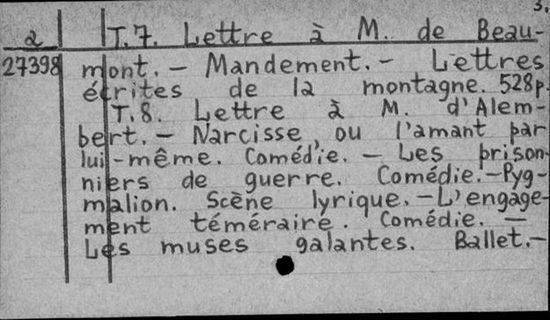 3.
a T.7. Lettre à M. de Beau-
27398 mont. - Mandement. - Lettres
écrites de la montagne. 528p.
T.8. Lettre à M. d'Alem-
bert. - Narcisse, ou l'amant par
lui-même. Comédie. - Les prison-
niers de guerre. Comédie. - Pyg-
malion. Scène lyrique. - L'engage-
ment téméraire. Comédie. -
Les muses galantes. Ballet. -